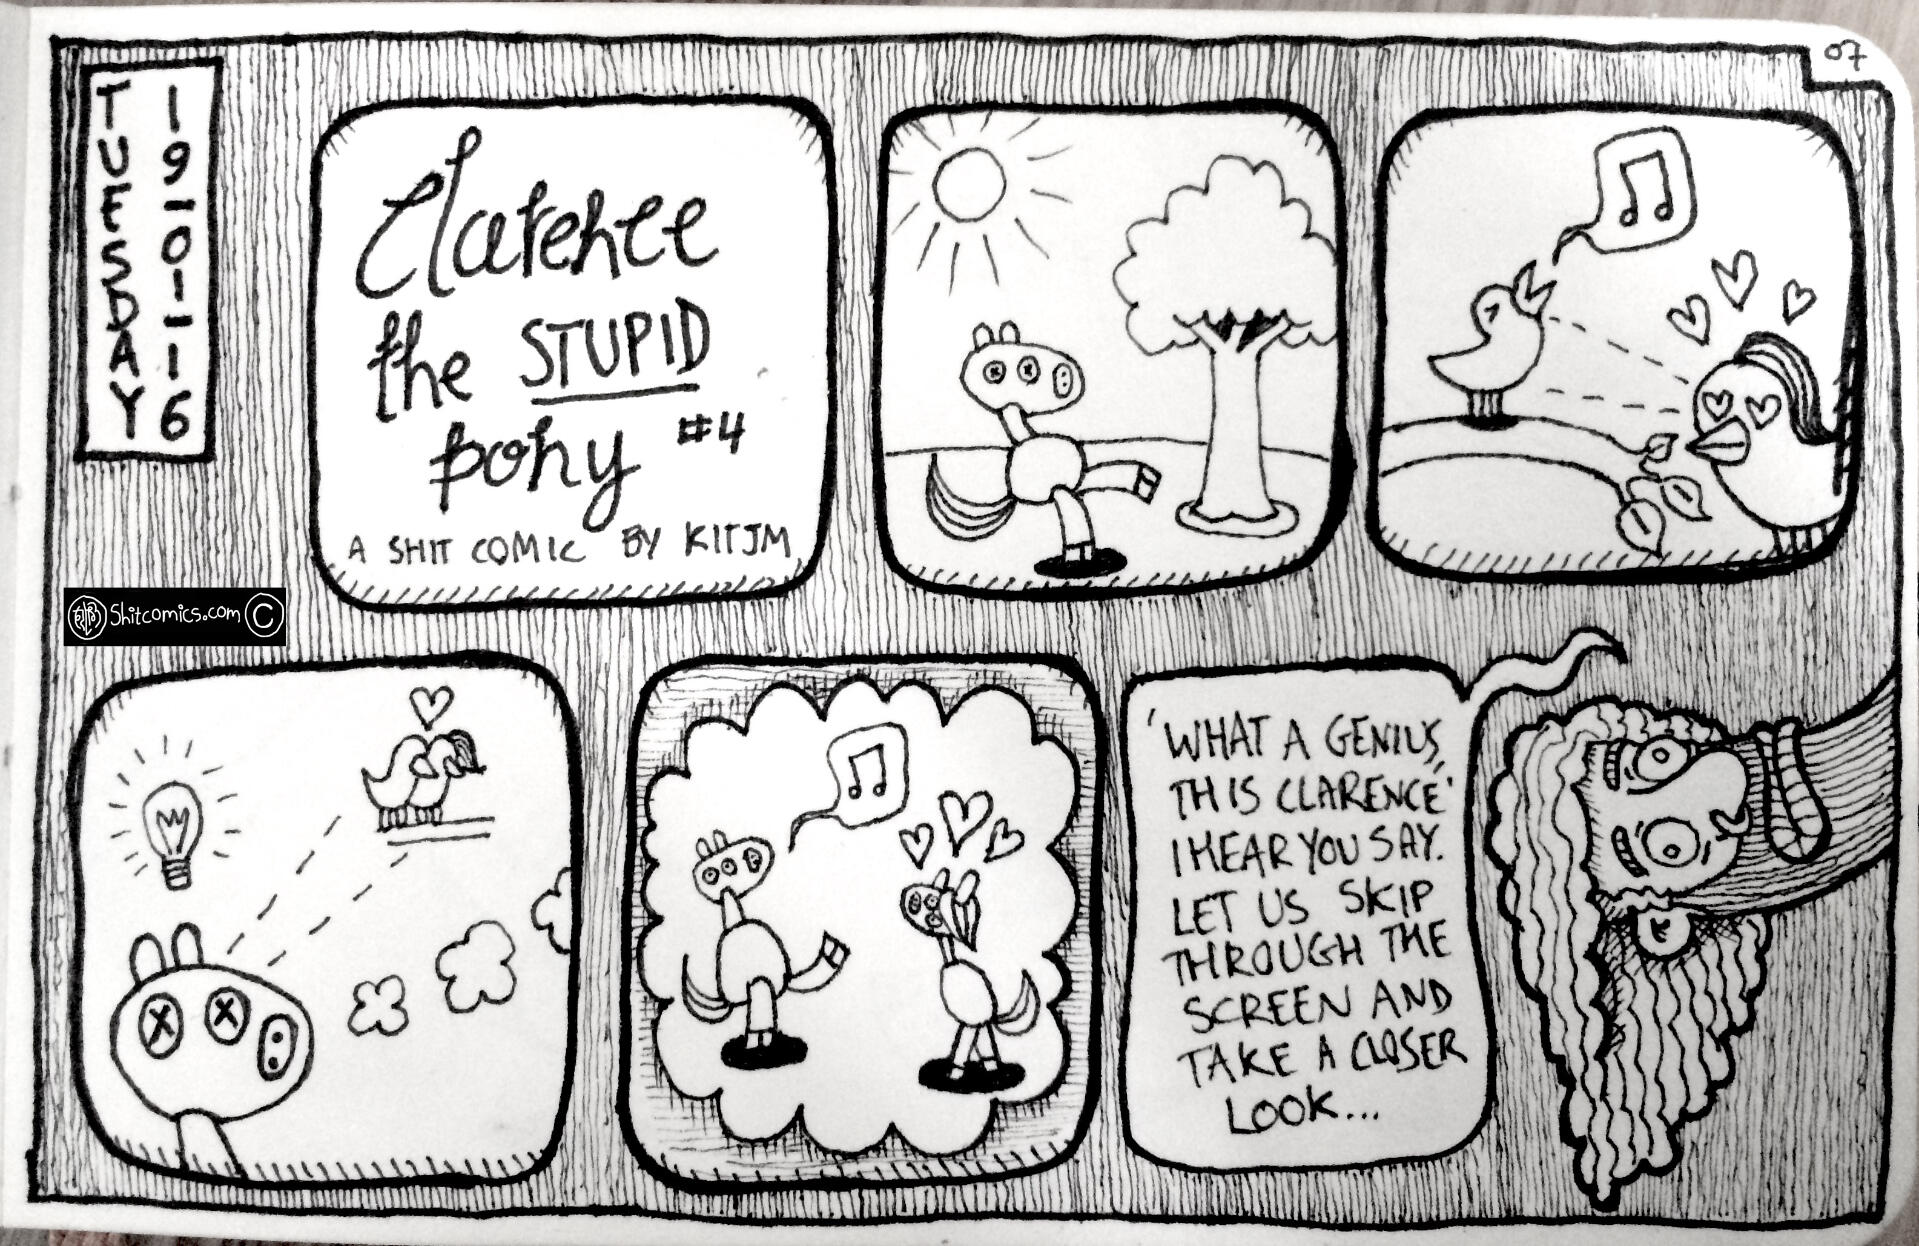 TUESDAY
19-01-16
07
Clarence
the STUPID
pony #4
A SHIT COMIC BY KITJM
Shitcomics.com ©
'WHAT A GENIUS,
THIS CLARENCE,'
I HEAR YOU SAY.
LET US SKIP
THROUGH THE
SCREEN AND
TAKE A CLOSER
LOOK...